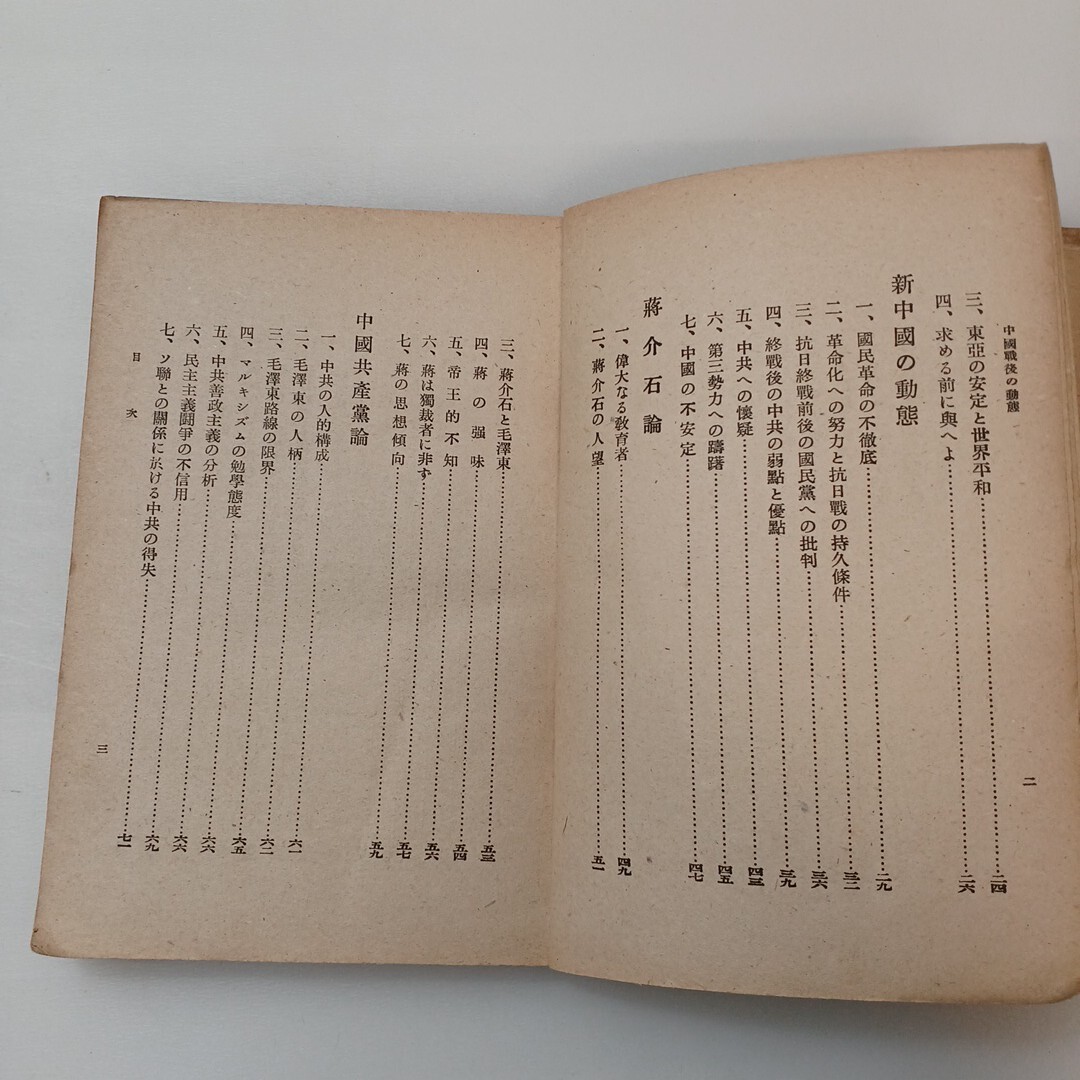 中國戰後の動態
三、東亞の安定と世界平和……二四
四、求める前に與へよ……二六
新中國の動態
一、國民革命の不徹底……二九
二、革命化への努力と抗日戰の持久條件……三二
三、抗日終戰前後の國民黨への批判……三六
四、終戰後の中共の弱點と優點……三九
五、中共への懷疑……四三
六、第三勢力への躊躇……四五
七、中國の不安定……四七
蔣介石論
一、偉大なる敎育者……四九
二、蔣介石の人望……五一
二
三、蔣介石と毛澤東……五三
四、蔣の强味……五四
五、帝王的不知……五六
六、蔣は獨裁者に非ず……五七
七、蔣の思想傾向……五九
中國共產黨論
一、中共の人的構成……六一
二、毛澤東の人柄……六二
三、毛澤東路線の限界……六五
四、マルキシズムの勉學態度……六六
五、中共善政主義の分析……六六
六、民主主義鬪爭の不信用……六九
七、ソ聯との關係に於ける中共の得失……七一
目次
三